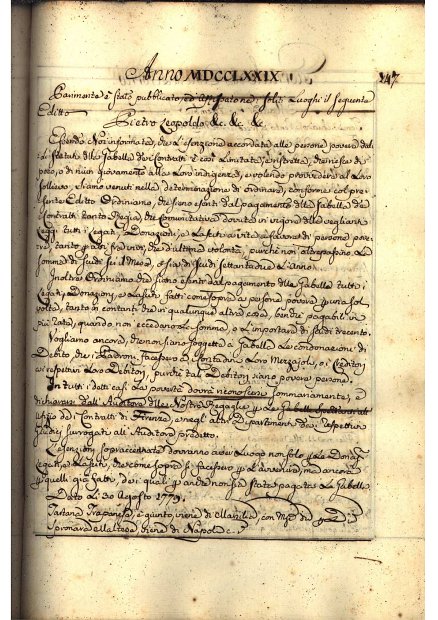 Anno MDCCLXXIX
247
Parimente è stato pubblicato, ed affisso ne soliti Luoghi il seguente
Editto
Pietro Leopoldo &c. &c. &c.
Essendo Noi informati, che l'esenzione accordata alle persone povere dal
li Statuti della Gabella dei Contratti è così limitata, e ristretta, che riesce di
poco, o di niun giovamento alla Loro indigenza, e volendo provvedere al Loro
sollievo, siamo venuti nella determinazione di ordinare, conforme col pre
sente Editto Ordiniamo, che siano esenti dal pagamento della Gabella dei
Contratti tanto Regia, che Comunitativa dovuta in vigore delle veglianti
Leggi tutti i Legati, Donazioni, e Lasciti a favore di persone pove
re, tanto fra i vivi, che d'ultima volontà, purchè non oltrepassino La
somma di Scudi sei il Mese, o sia di Scudi settantadue l'Anno.
Inoltre Ordiniamo che siano esenti dal pagamento della Gabella tutti i
Legati, Donazioni, e Lasciti fatti come sopra a persone povere p una sol
volta, tanto in contanti che in qualunque altra cosa, benchè pagabili in
più rate, quando non eccedano la somma, o l'importare di Scudi trecento.
Vogliamo ancora, che non siano soggette a Gabella Le condonazioni di
Debito, che i Padroni facessero ai Contadini Loro Mezzajoli, o i Creditori
ai respettivi Loro Debitori, purchè tali Debitori siano povere persone.
In tutti i detti casi La povertà dovrà riconoscersi sommariamente, e
dichiararsi dall'Auditore delle Nostre Regaglie p Le Gabelle
Ufizio dei Contratti di Firenze, e negl'altri Dipartimenti dai respettivi
Giudici surrogati all'Auditore predetto.
L'esenzioni sopraccennate dovranno aver Luogo non solo p Le Donaz.
Legati, e Lasciti, che come sopra si facessero p L'avvenire, ma ancora
p quelli già fatti, dei quali p anche non sia stata pagata La Gabella.
Dato Li 30 Agosto 1779.
Tartana Trapanese, è giunto, viene di Manilia, con
Speronara Maltese, viene di Napoli